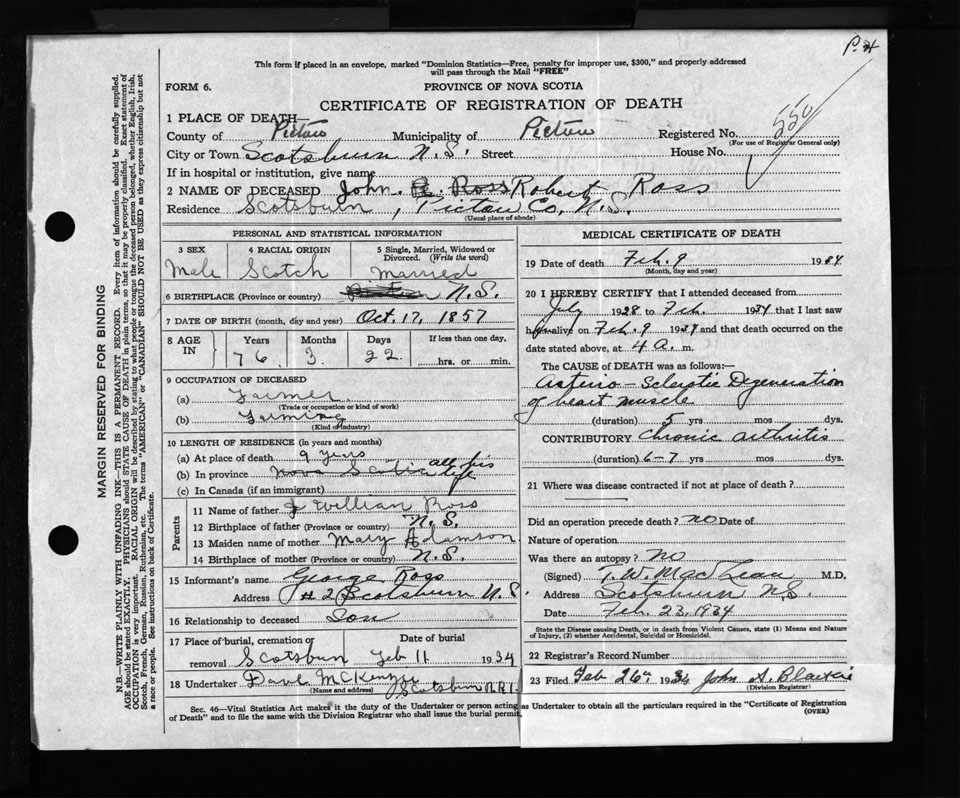 P. H
This form if placed in an envelope, marked "Dominion Statistics—Free, penalty for improper use, $300," and properly addressed
will pass through the Mail "FREE"
FORM 6.
PROVINCE OF NOVA SCOTIA
CERTIFICATE OF REGISTRATION OF DEATH
1 PLACE OF DEATH—
County of Pictou Municipality of Pictou Registered No. 550
(For use of Registrar General only)
City or Town Scotsburn N.S. Street House No.
If in hospital or institution, give name
2 NAME OF DECEASED John. Ross Robert Ross
Residence Scotsburn, Pictou Co, N.S.
(Usual place of abode)
PERSONAL AND STATISTICAL INFORMATION
3 SEX 4 RACIAL ORIGIN 5 Single, Married, Widowed or
Divorced. (Write the word)
Male Scotch Married
6 BIRTHPLACE (Province or country) N.S.
7 DATE OF BIRTH (month, day and year) Oct. 17, 1857
8 AGE IN Years Months Days If less than one day,
76 3 22 hrs. or min.
9 OCCUPATION OF DECEASED
(a) Farmer
(Trade or occupation or kind of work)
(b) Farming
(Kind of industry)
10 LENGTH OF RESIDENCE (in years and months)
(a) At place of death 9 years
(b) In province Nova Scotia all his life
(c) In Canada (if an immigrant)
Parents
11 Name of father J William Ross
12 Birthplace of father (Province or country) N.S.
13 Maiden name of mother Mary Adamson
14 Birthplace of mother (Province or country) N.S.
15 Informant's name George Ross
Address # 2 Scotsburn N.S.
16 Relationship to deceased Son
17 Place of burial, cremation or Date of burial
removal Scotsburn Feb 11 1934
18 Undertaker Dave McKenzie
(Name and address) Scotsburn R.R.1.
MEDICAL CERTIFICATE OF DEATH
19 Date of death Feb. 9 1934
(Month, day and year)
20 I HEREBY CERTIFY that I attended deceased from
July 1928 to Feb. 1934 that I last saw
him alive on Feb. 9 1934 and that death occurred on the
date stated above, at 4 a. m.
The CAUSE OF DEATH was as follows:—
Arterio-Sclerotic Degeneration
of heart muscle
(duration) 5 yrs mos dys.
CONTRIBUTORY Chronic arthritis
(duration) 6-7 yrs mos dys.
21 Where was disease contracted if not at place of death?
Did an operation precede death? no Date of
Nature of operation
Was there an autopsy? no
(Signed) T. W. MacLean M.D.
Address Scotsburn N.S.
Date Feb. 23, 1934
State the Disease causing Death, or in death from Violent Causes, state (1) Means and Nature
of Injury, (2) whether Accidental, Suicidal or Homicidal.
22 Registrar's Record Number
23 Filed Feb 26th 1934 John S.
(Division Registrar)
Sec. 46—Vital Statistics Act makes it the duty of the Undertaker or person acting as Undertaker to obtain all the particulars required in the "Certificate of Registration
of Death" and to file the same with the Division Registrar who shall issue the burial permit.
(OVER)
MARGIN RESERVED FOR BINDING
N.B.—WRITE PLAINLY WITH UNFADING INK—THIS IS A PERMANENT RECORD. Every item of information should be carefully supplied.
AGE should be stated EXACTLY. PHYSICIANS should STATE CAUSE OF DEATH in plain terms, so that it may be properly classified. Exact statement of
OCCUPATION is very important. RACIAL ORIGIN will be described by stating to what people or tongue the deceased person belonged, whether English, Irish,
Scotch, French, German, Russian, Ruthenian, etc. The terms "AMERICAN" or "CANADIAN" SHOULD NOT BE USED as they express citizenship but not
a race or people. See instructions on back of Certificate.